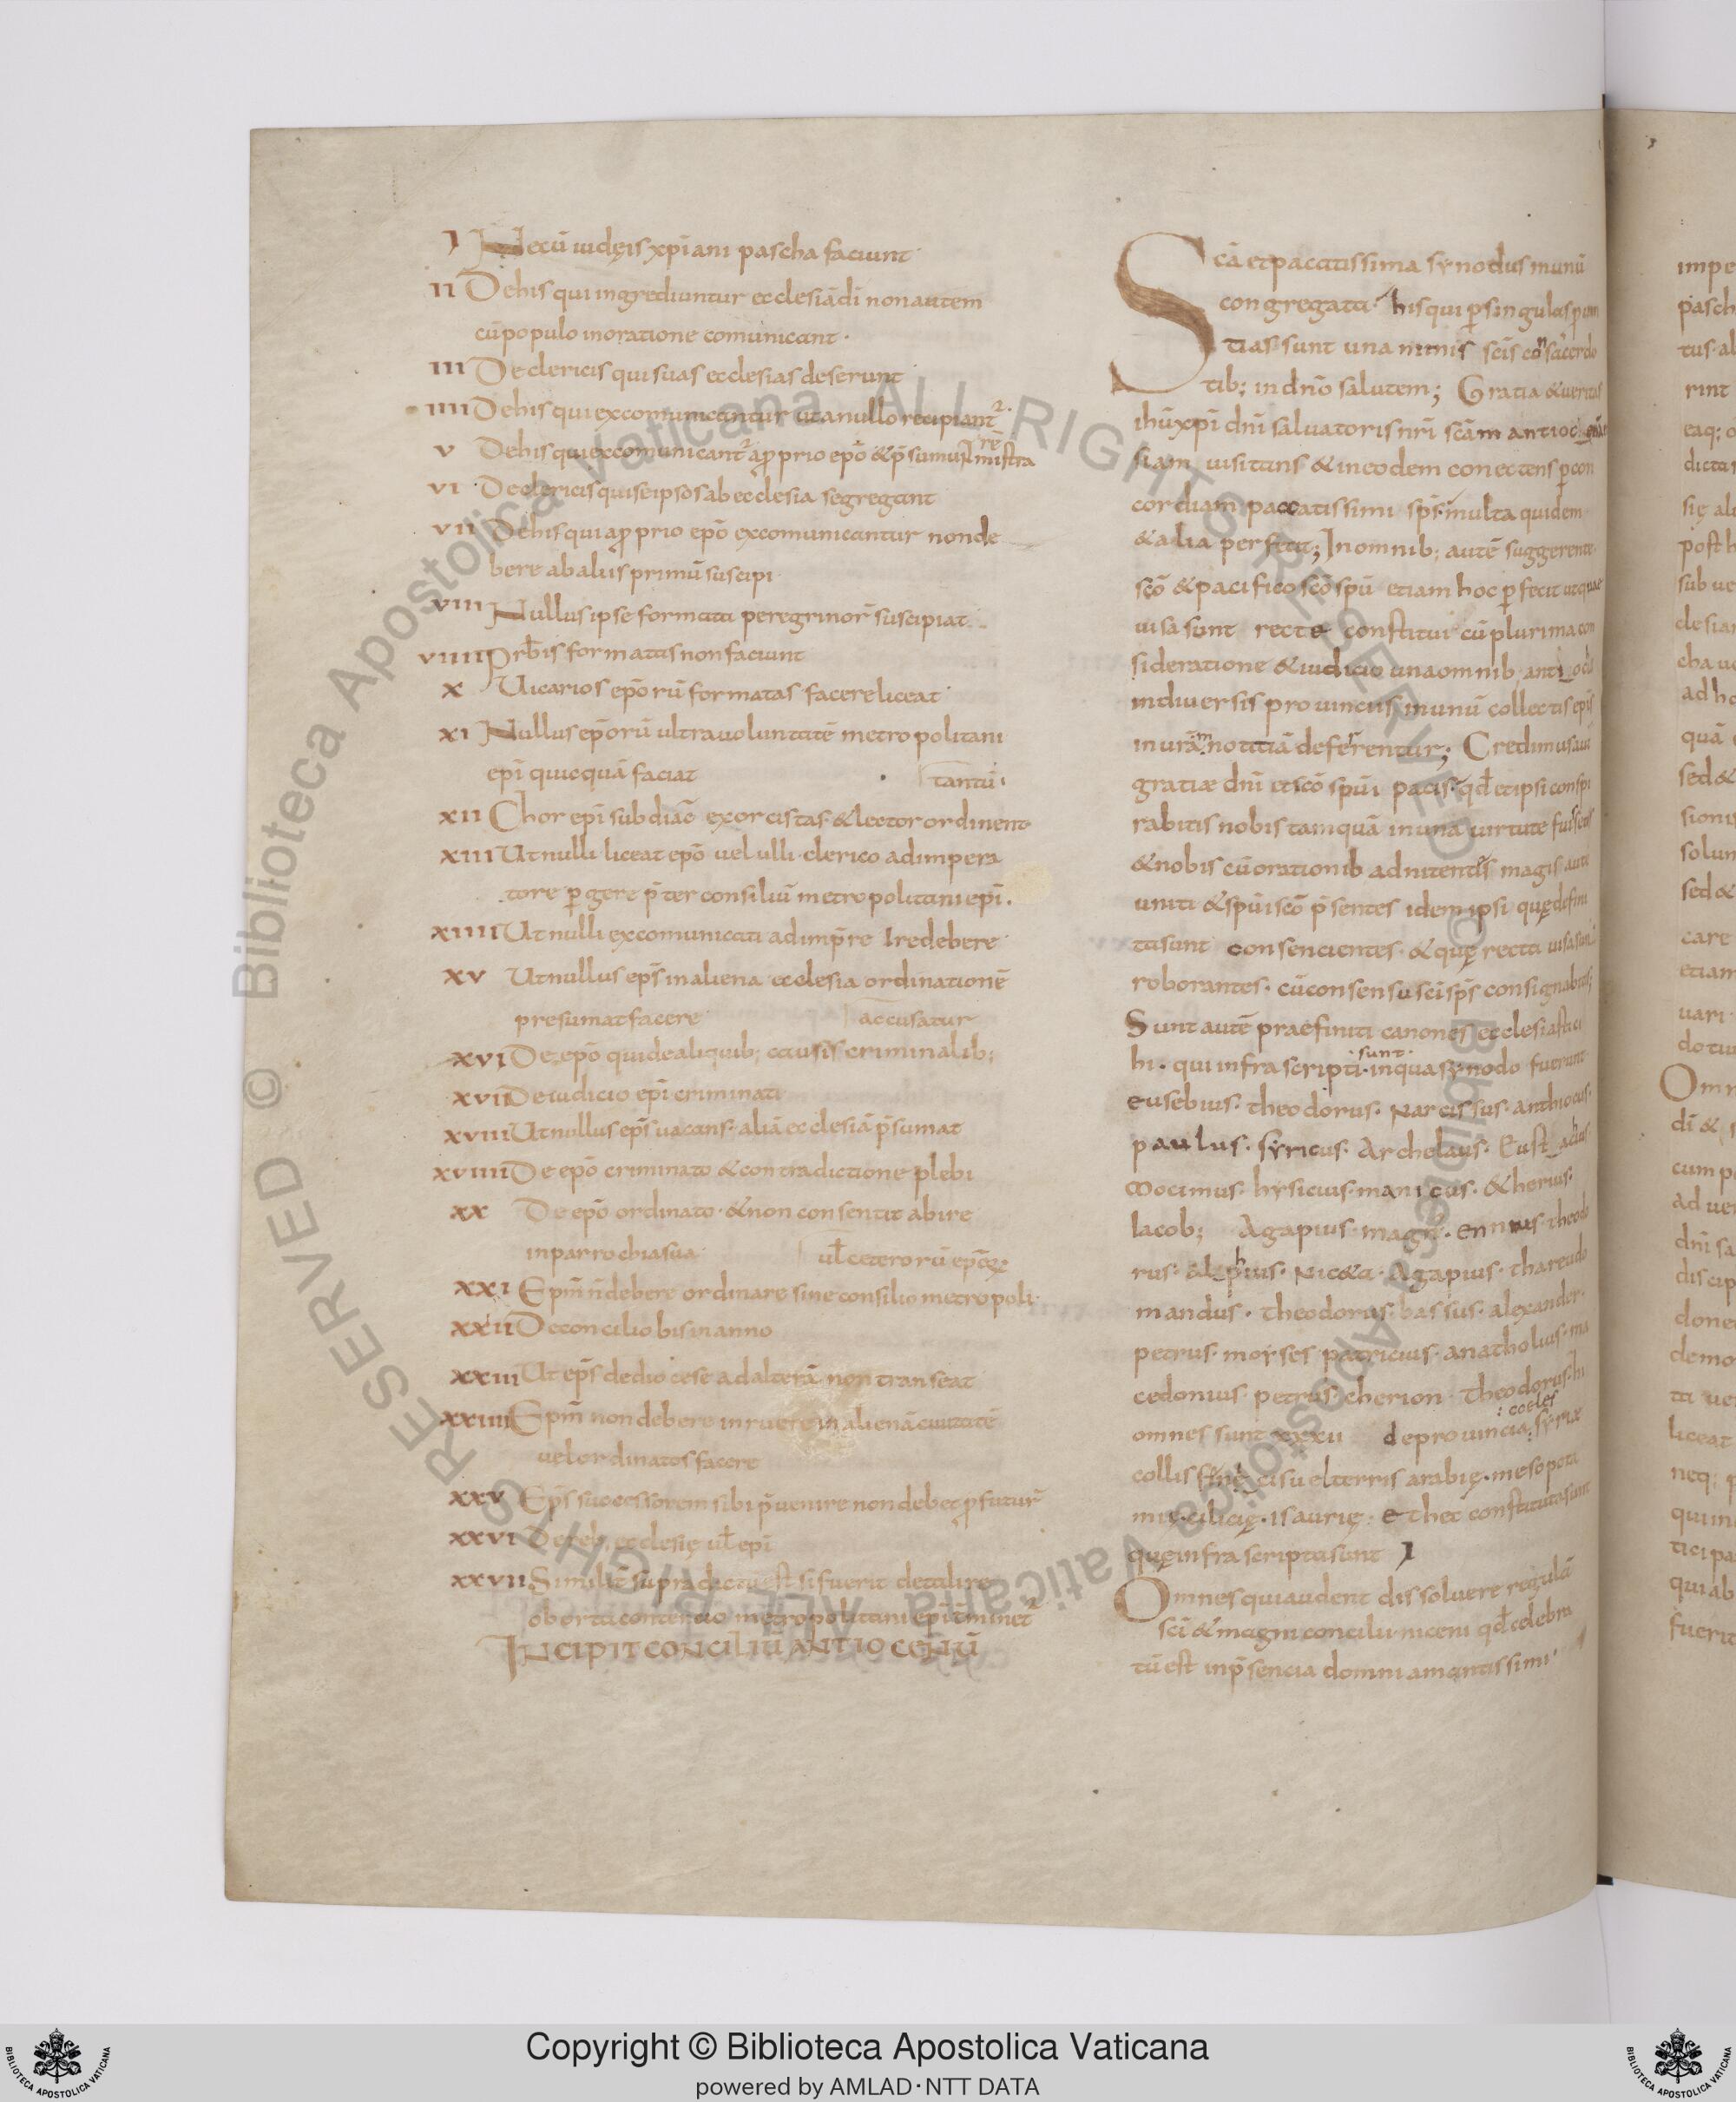 I Necū iudęis xp̄iani pascha faciunt
II Dehis qui ingrediuntur ecclesiā dī non autem
cū populo in oratione comunicant·
III De clericis qui suas ecclesias deserunt
IIII Dehis qui excomunicantur ut a nullo recipiant²·
rē
V Dehis qui excomunicant² a ꝓprio ep̄o & p̄sumu mistra
VI De clericis qui seipsos ab ecclesia segregant
VII Dehis qui a ꝓprio ep̄o excomunicantur non de
bere ab aliis primū suscipi·
VIII Nullus ipse formata peregrinor̄ suscipiat
VIIII Prb̄is formatas non faciunt
X Uicarios ep̄orū formatas facere liceat·
XI Nullus ep̄orū ultra uoluntatē metropolitani
ep̄i quicquā faciat
tantū·
XII Chor ep̄i subdiac̄ exorcistas & lector ordinent·
XIII Ut nulli liceat ep̄o uel ulli clerico ad impera
tore ꝑgere p̄ter consiliū metropolitani ep̄i·
XIIII Ut nulli excomunicati ad imp̄re Ire debere·
XV Ut nullus ep̄s in aliena ecclesia ordinationē
presumat facere
accusatur
XVI De ep̄o qui de aliquib; causis criminalib;
XVII De iudicio ep̄i criminati
XVIII Ut nullus ep̄s uacans· aliā ecclesiā p̄sumat
XVIIII De ep̄o criminato & contradictione plebi
XX De ep̄o ordinato· & non consentit abire
in parrochia sua·
uł ceterorū
XXI Ep̄m n̄ debere ordinare sine consilio metropoli·
XXII De concilio bis in anno
XXIII Ut ep̄s de diocese ad alterā non transeat
XXIIII Ep̄m non debere inruere in alienā ciuitatē
uel ordinatos facere
XXV Ep̄s successorem sibi p̄uenire non debet ꝓ futur̄
XXVI De reb; ecclesię uł ep̄i
XXVII Similit̄ supra dictu est si fuerit de tali re
oborta contencio metropolitani ep̄i
INCIPIT CONCILIŪ ANTIOCENŪ
Scā et pacatissima synodus inunū
congregata· his qui ꝑ singulas
tias sunt unanimis sc̄is consacerdo
tib; in dn̄o salutem; Gratia & ueritas
ih̄u xp̄i dn̄i saluatoris nr̄i sc̄am antioc
siam uisitans & in eodem conectens ꝑ con
cordiam pacatissimi sp̄s· multa quidem
& alia perfecit; In omnib; autē suggerente
sc̄o & pacifico sc̄o sp̄u etiam hoc ꝑfecit ut quae
uisa sunt recte constitui cū plurima con
sideratione & iudicio una omnib; antiochi
in diuersis prouinciis inunū collectis ep̄is
in urām notitiā deferrentur; Credimus aut
gratiæ dn̄i et sc̄o sp̄ui pacis· qđ et ipsi conspi
rabitis nobis tamquā in una uirtute
& nobis cū orationib; adnitentes magis autē
uniti & sp̄ui sc̄o p̄sentes idem ipsi quę defini
ta sunt consencientes· & quę recta uisa sunt
roborantes· cū consensu sc̄i sp̄s consignabitis;
Sunt autē praefiniti canones ecclesiastici
sunt
hi· qui infra scripti· in qua synodo fuerunt
eusebius· theodorus· Narcissus· anthiocus·
paulus· syricus· Archelaus· Eustachius·
Mocimus· hysicius· manicus· & herius·
Iacob; Agapius· magn· Ennius· theodo
rus· alphius· Nicæa· Agapius· thareudo
mandus· theodorus· bassus· alexander·
petrus· moyses· patricius· anatholius· ma
cedonius· petrus· cherion· theodorus· hi
coeles
omnes sunt XXXII de prouincia; syriæ
collis cis uel terris arabię· mesopota
mię· cilicię· isaurię· et hec constituta sunt
quę infra scripta sunt I
Omnes qui audent dissoluere regulā
sc̄i & magni concilii niceni qđ celebra
tū est inp̄sencia domni amantissimi